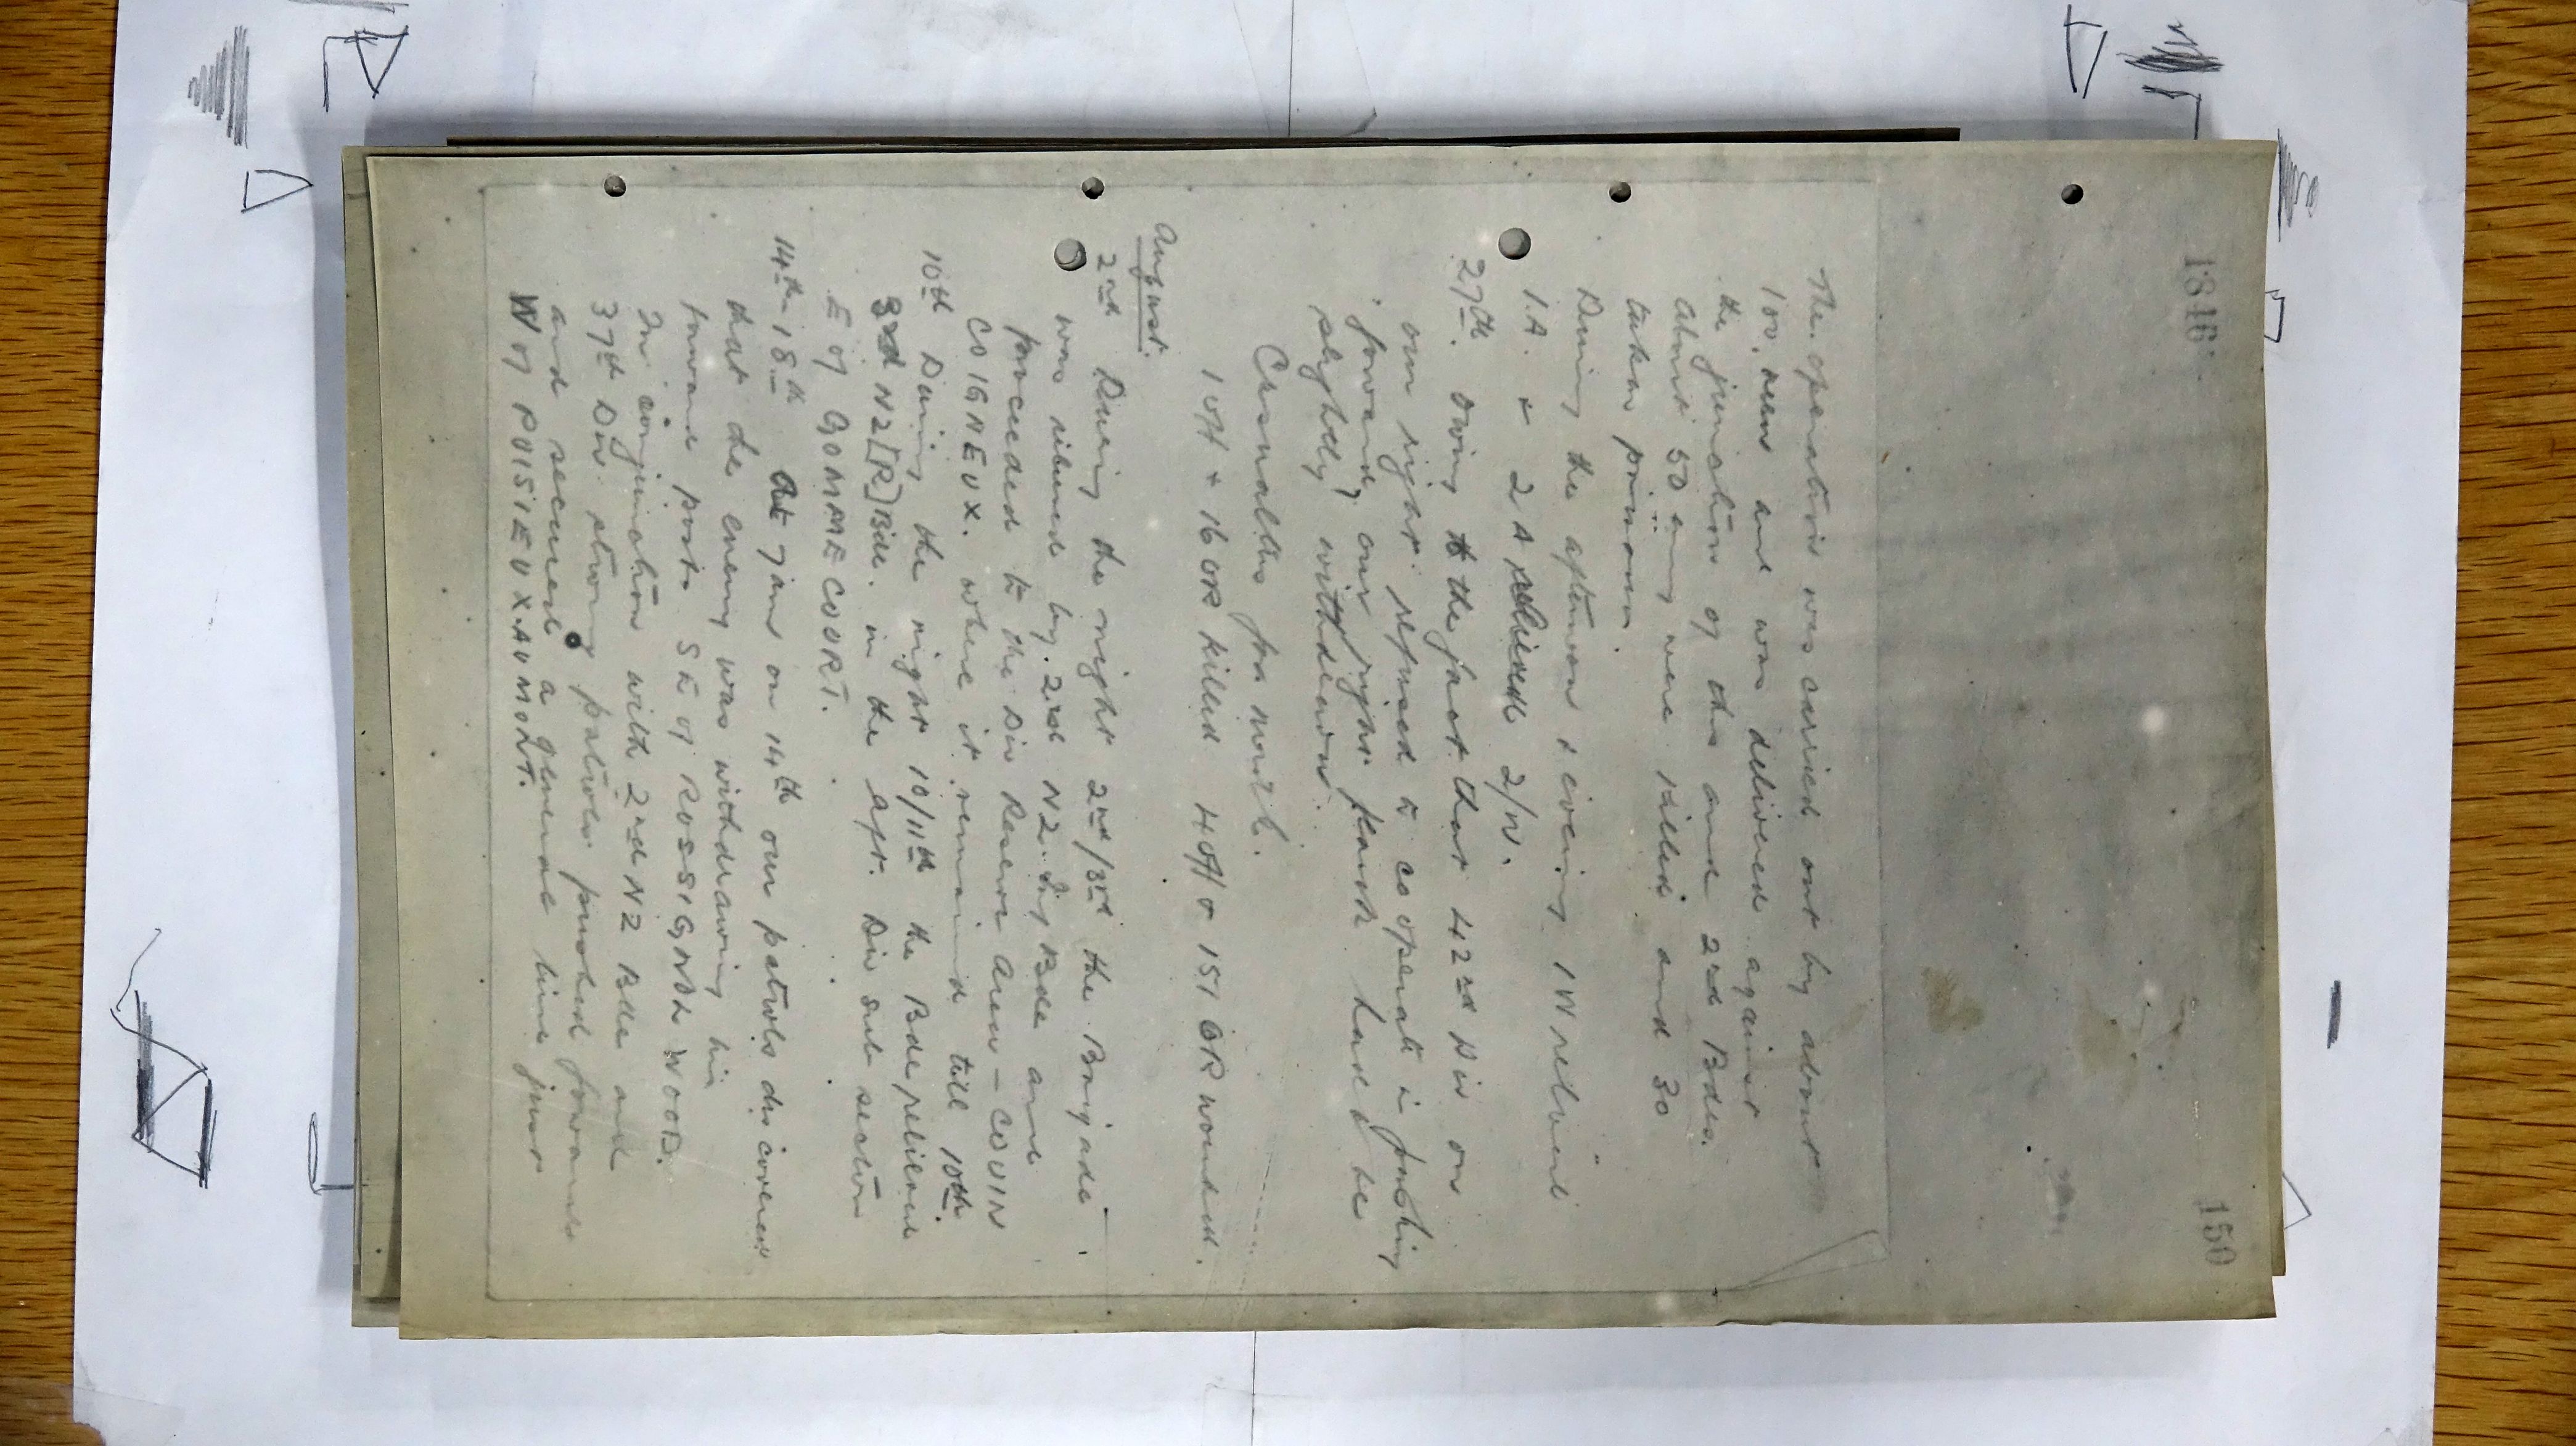 1816
150
The operation was carried out by about
100 men and was delivered against
the junction of this and 2nd Bdes.
About 50 enemy were killed and 30
taken prisoners.
During the afternoon & evening 1W relieved
1A. & 2A relieved 2/W.
27th. Owing to the fact that 42nd Div on
our right refused to cooperate in pushing
forward, our right flank had to be
slightly withdrawn.
Casualties for month.
1 Off + 16 OR killed 4 Off & 151 OR wounded.
August.
2nd During the night 2nd/3rd the Brigade
was relieved by 2nd NZ Inf Bde and
proceeded to the Div Reserve Area - COUIN
COIGNEUX. where it remained till 10th.
10th During the night 10/11th the Bde relieved
3rd NZ[R]Bde. in the Left Div sub section
E of GOMMECOURT.
14th-18th At 7 am on 14th our patrols discovered
that the enemy was withdrawing his
forward posts SE of ROSSIGNOL WOOD.
In conjunction with 2nd NZ Bde and
37th Div strong patrols pushed forward
and secured a general line just
W of PUISIEUX.AU MONT.